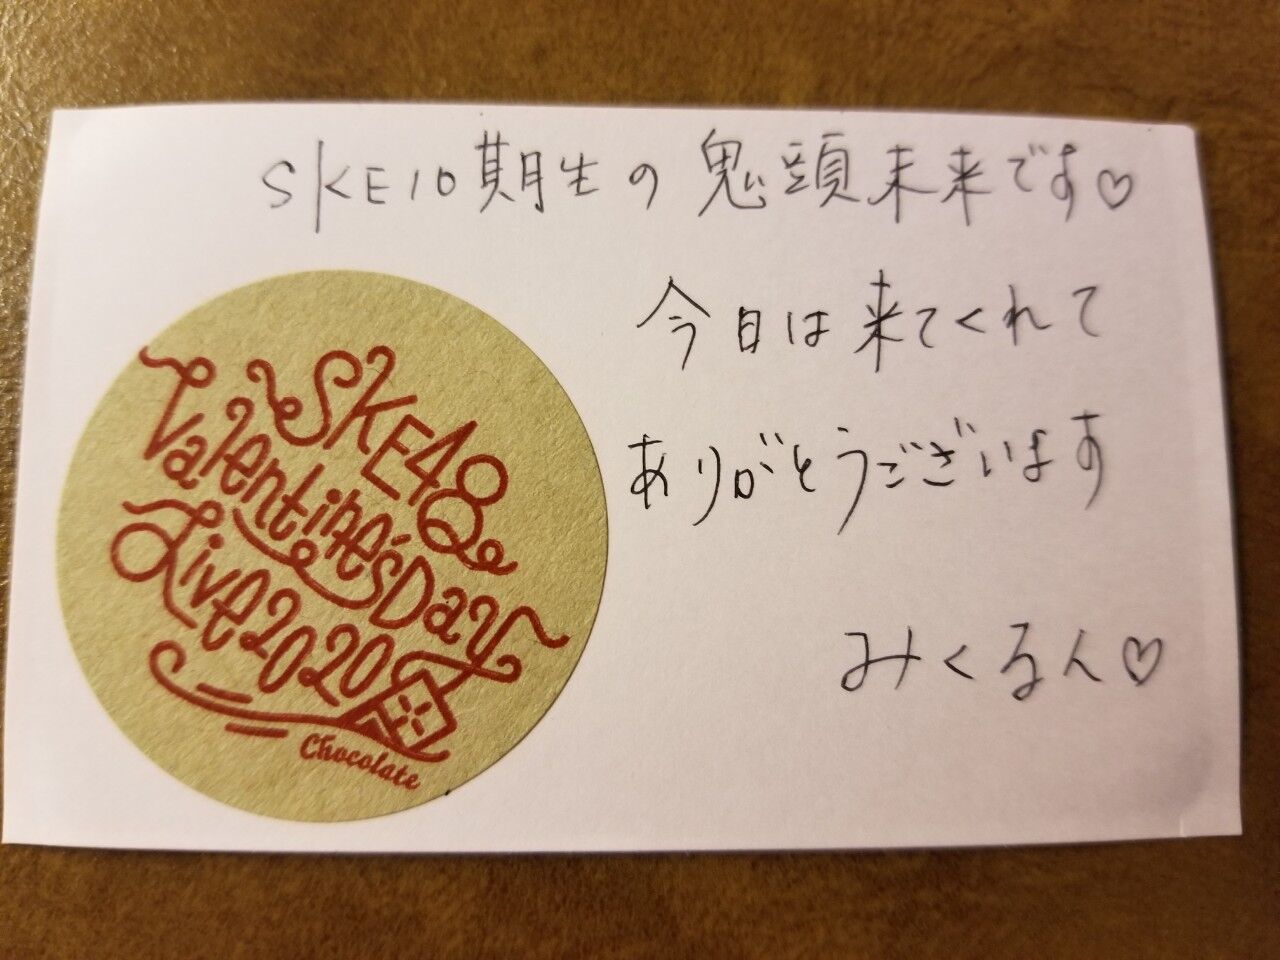 SKE10期生の鬼頭未来です♡
今日は来てくれて
ありがとうございます
みくるん♡
SKE48
Valentine's Day
Live 2020
Chocolate